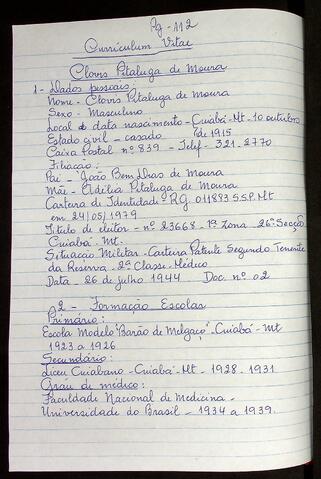 Pg-112
Curriculum Vitae
Clovis Pitaluga de Moura
1- Dados pessoais
Nome - Clovis Pitaluga de Moura
Sexo - Masculino
Local e data nascimento - Cuiabá - Mt - 10 outubro
de 1915
Estado civil - casado
Caixa Postal nº 839 - Telef - 321-2770
Filiação:
Pai - João Bem Dias de Moura
Mãe - Adilia Pitaluga de Moura
Carteira de Identidade RG. 011893 S.S.P. Mt
em 24/05/1979
Titulo de eleitor - nº 23668 - 1ª Zona - 26ª Secção
Cuiabá - Mt.
Situação Militar - Carteira Patente Segundo Tenente
da Reserva - 2ª Classe - Médico
Data - 26 de julho 1944 Doc. nº 02
2 - Formação Escolar
Primário:
Escola Modelo "Barão de Melgaço" - Cuiabá - Mt
1923 a 1926
Secundário:
Liceu Cuiabano - Cuiabá - Mt - 1928 - 1931
Grau de médico:
Faculdade Nacional de Medicina -
Universidade do Brasil - 1934 a 1939.